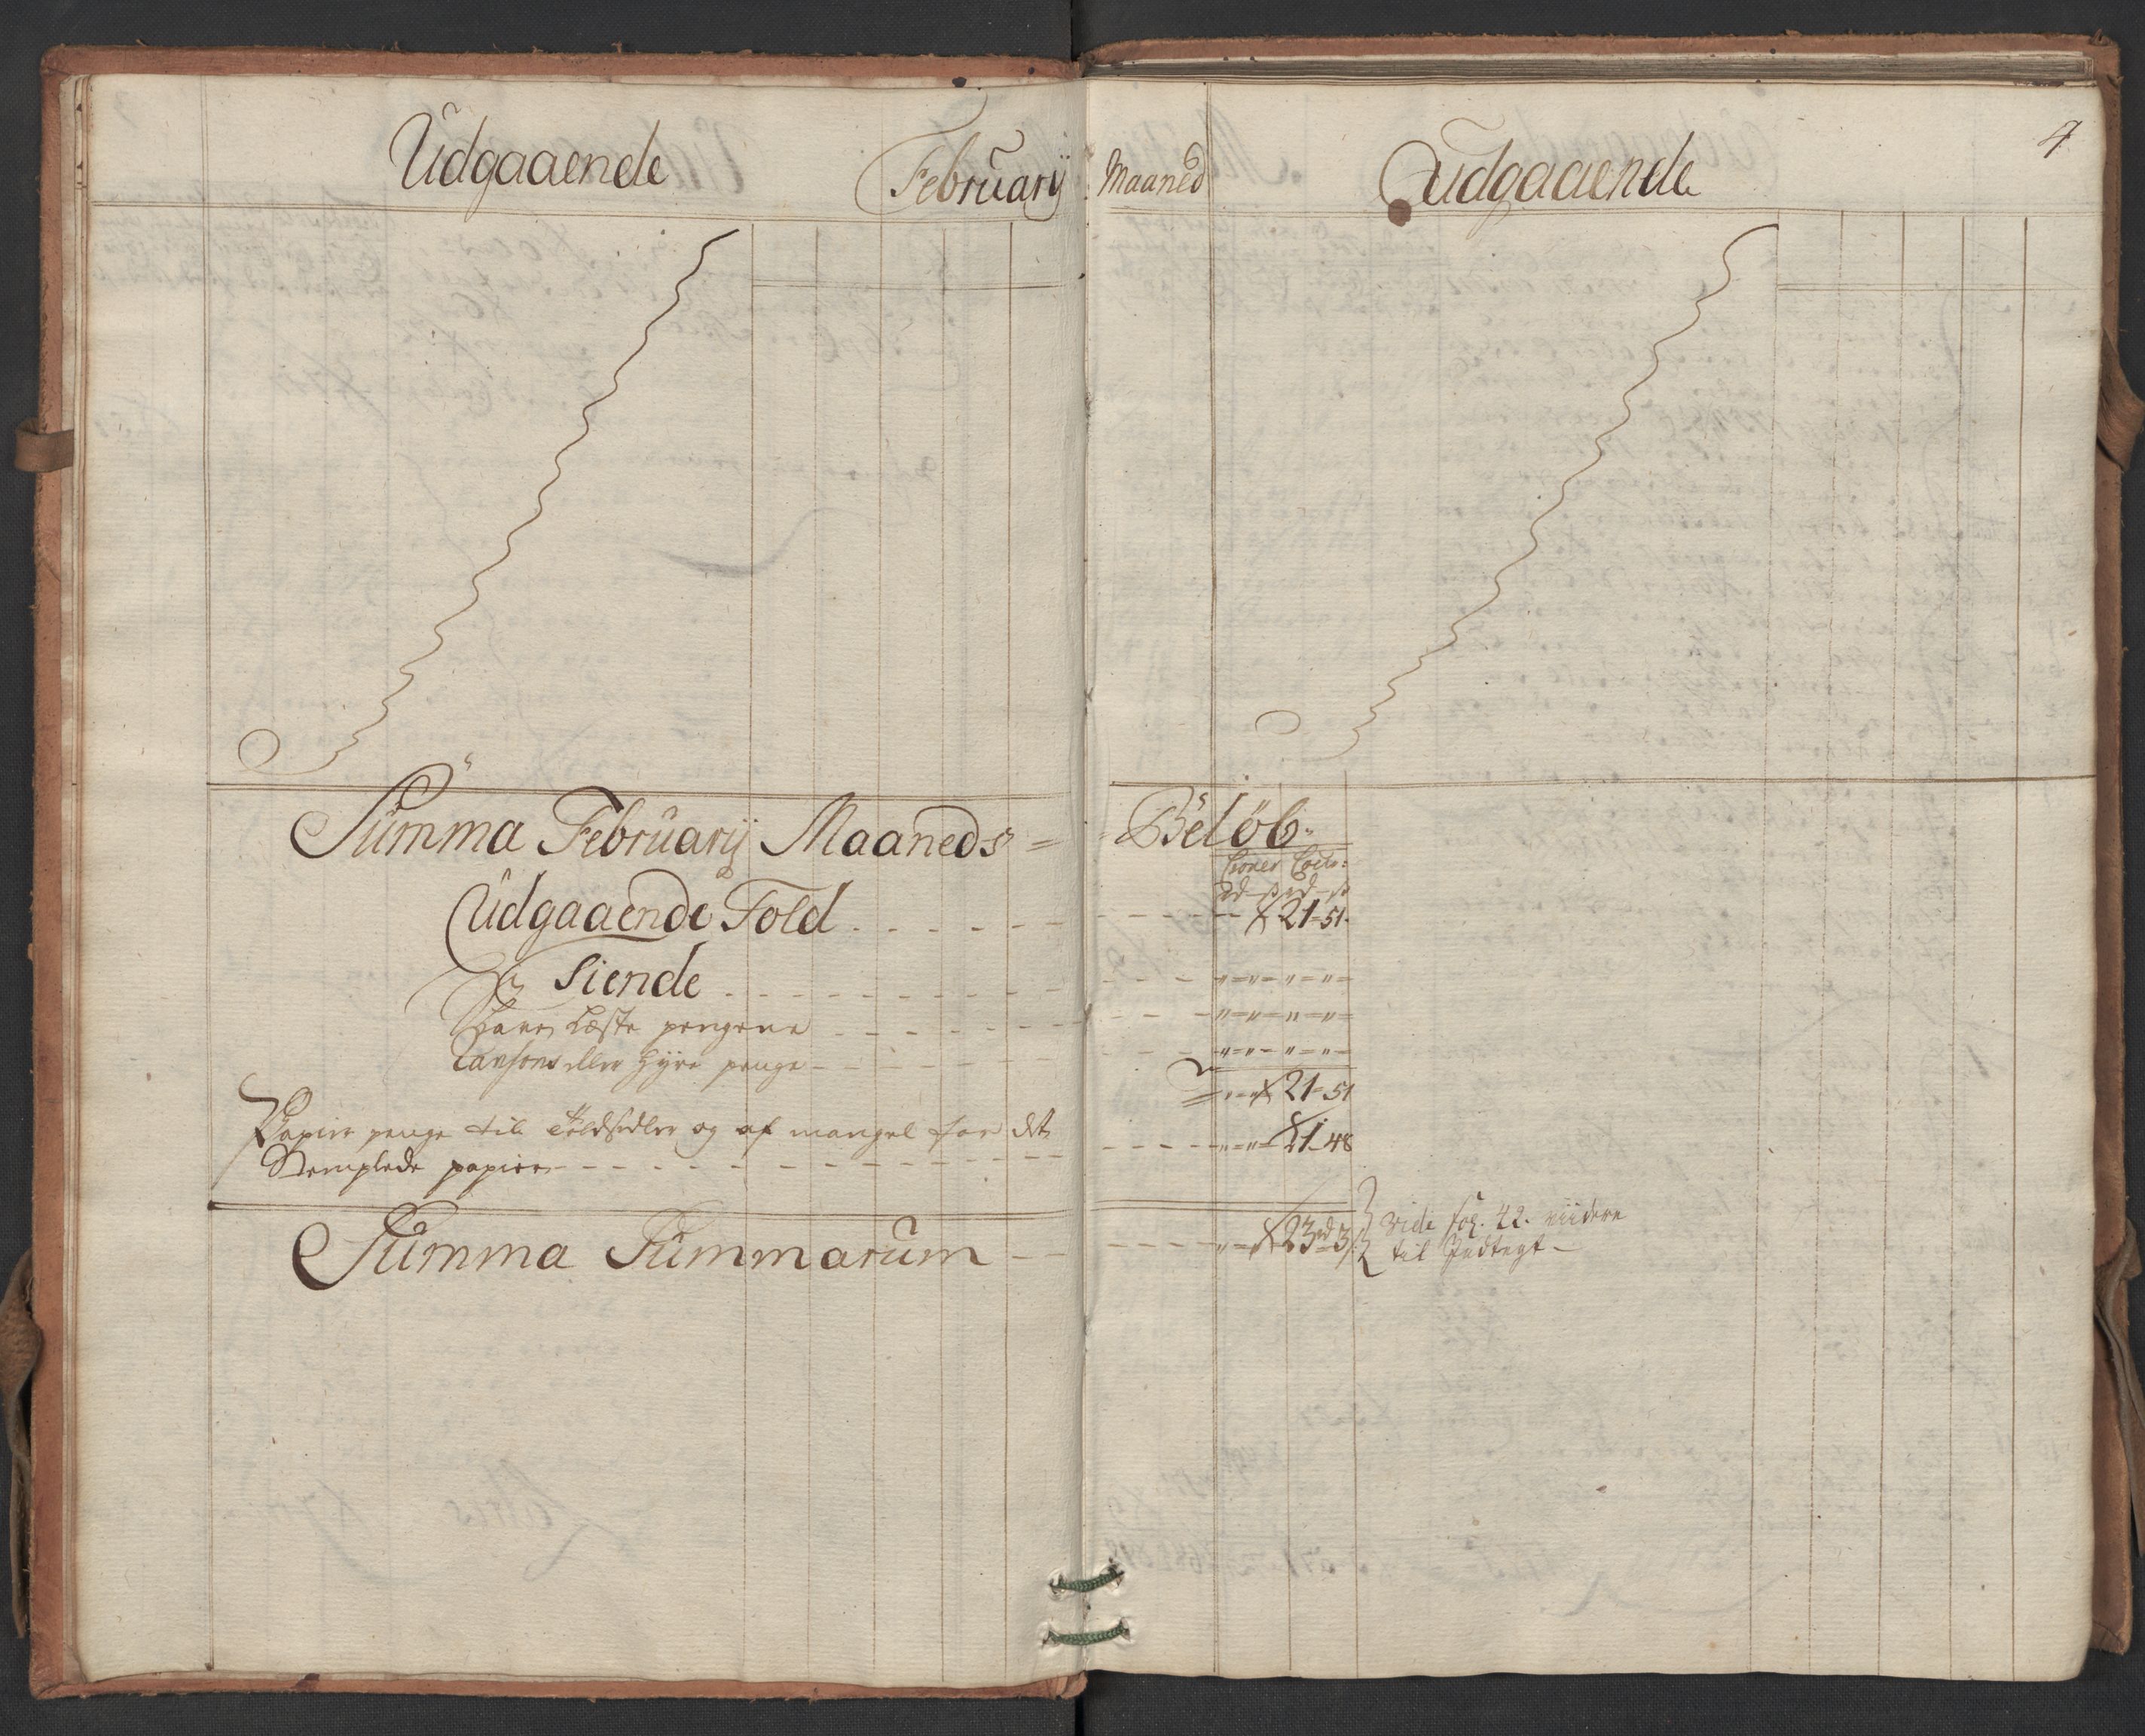 Udgaaende Februarÿ Maaned Udgaaende 4
Summa Februarÿ Maaneds = Beløb.
Croner Cour:
rd ß rd ß
Udgaaende Told - - - - - 21 - 51.
Tiende - - - - - " = " = " = " =
Læste pengene - - - - " = " = " = " =
eller Hÿre penge - - - - " = " = " = " =
21 - 51
Papiir penge til Toldsedler og af mangel for det
Stemplede papiir - - - - - " = " = 1 - 48
Summa Summarum - - - - 23 rd 3 ß
vide fol. 42. viidere
til Indtegt -